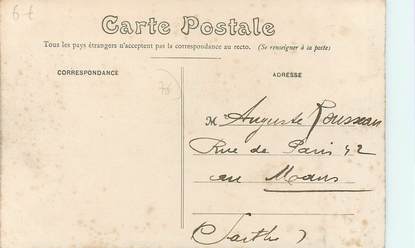 6 €
Carte Postale
Tous les pays étrangers n'acceptent pas la correspondance au recto. (Se renseigner à la poste)
CORRESPONDANCE
ADRESSE
M Auguste Rousseau
Rue de Paris 42
au Mans
(Sarthe)